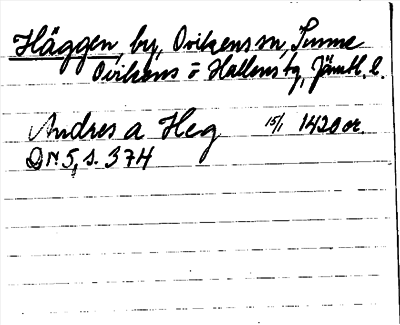 Häggen, by, Ovikens sn, Sunne
Ovikens o Hallens tg, Jämtl. l.
Andres a Heg 15/1 1420 or.
DN 5, s. 374